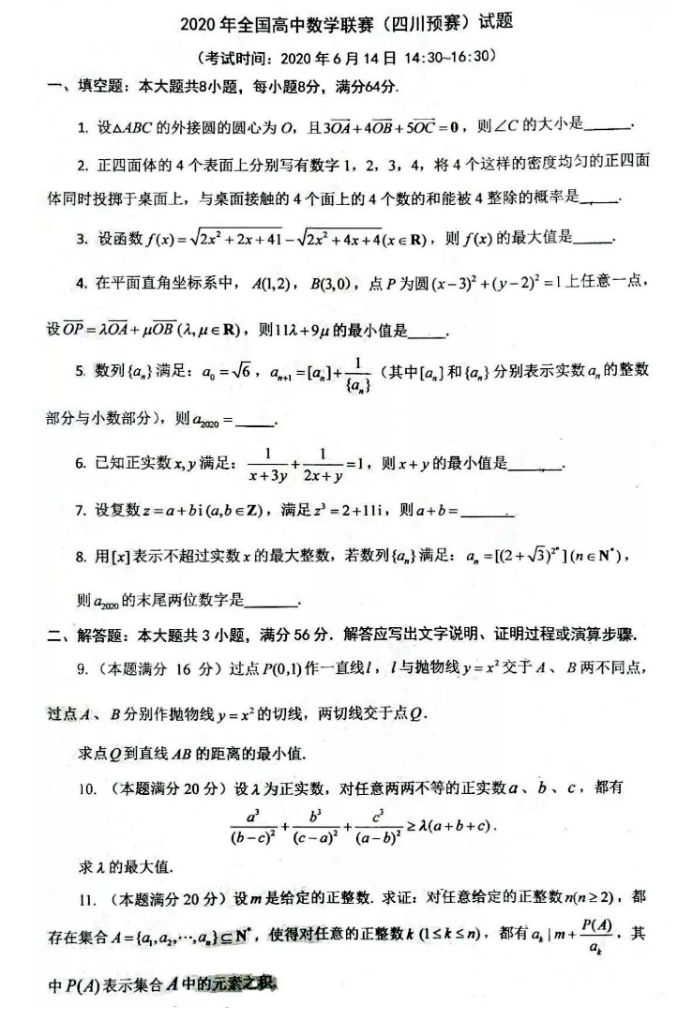 2020年全国高中数学联赛（四川预赛）试题
（考试时间：2020年6月14日 14:30~16:30）
一、填空题：本大题共8小题，每小题8分，满分64分.
1. 设△ABC 的外接圆的圆心为 O，且3\overrightarrow{OA}+4\overrightarrow{OB}+5\overrightarrow{OC}=0，则∠C 的大小是______.
2. 正四面体的 4 个表面上分别写有数字 1，2，3，4，将 4 个这样的密度均匀的正四面
体同时投掷于桌面上，与桌面接触的 4 个面上的 4 个数的和能被 4 整除的概率是______.
3. 设函数 f(x)=\sqrt{2x²+2x+41}-\sqrt{2x²+4x+4}(x∈R)，则 f(x) 的最大值是______.
4. 在平面直角坐标系中，A(1,2)，B(3,0)，点 P 为圆 (x-3)²+(y-2)²=1上任意一点，
设\overrightarrow{OP}=λ\overrightarrow{OA}+μ\overrightarrow{OB}(λ,μ∈R)，则11λ+9μ的最小值是______.
5. 数列{a_n}满足：a_0=√6，a_{n+1}=[a_n]+\frac{1}{\{a_n\}}（其中[a_n]和{a_n}分别表示实数a_n的整数
部分与小数部分），则a_{2020}=______.
6. 已知正实数x,y满足：\frac{1}{x+3y}+\frac{1}{2x+y}=1，则x+y的最小值是______.
7. 设复数z=a+bi(a,b∈Z)，满足z³=2+11i，则a+b=______
8. 用[x]表示不超过实数x的最大整数，若数列{a_n}满足：a_n=[(2+√3)^{2^n}](n∈N*)，
则a_{2020}的末尾两位数字是______.
二、解答题：本大题共 3 小题，满分 56 分．解答应写出文字说明、证明过程或演算步骤．
9.（本题满分 16 分）过点P(0,1)作一直线l，l与抛物线y=x²交于A、B两不同点，
过点A、B分别作抛物线y=x²的切线，两切线交于点Q．
求点Q到直线AB的距离的最小值．
10.（本题满分 20 分）设λ为正实数，对任意两两不等的正实数a、b、c，都有
\frac{a³}{(b-c)²}+\frac{b³}{(c-a)²}+\frac{c³}{(a-b)²}≥λ(a+b+c).
求λ的最大值．
11.（本题满分 20 分）设m是给定的正整数．求证：对任意给定的正整数n(n≥2)，都
存在集合A={a_1,a_2,⋯,a_n}⊆N*，使得对任意的正整数k(1≤k≤n)，都有a_k|m+\frac{P(A)}{a_k}．其
中P(A)表示集合A中的元素之积.